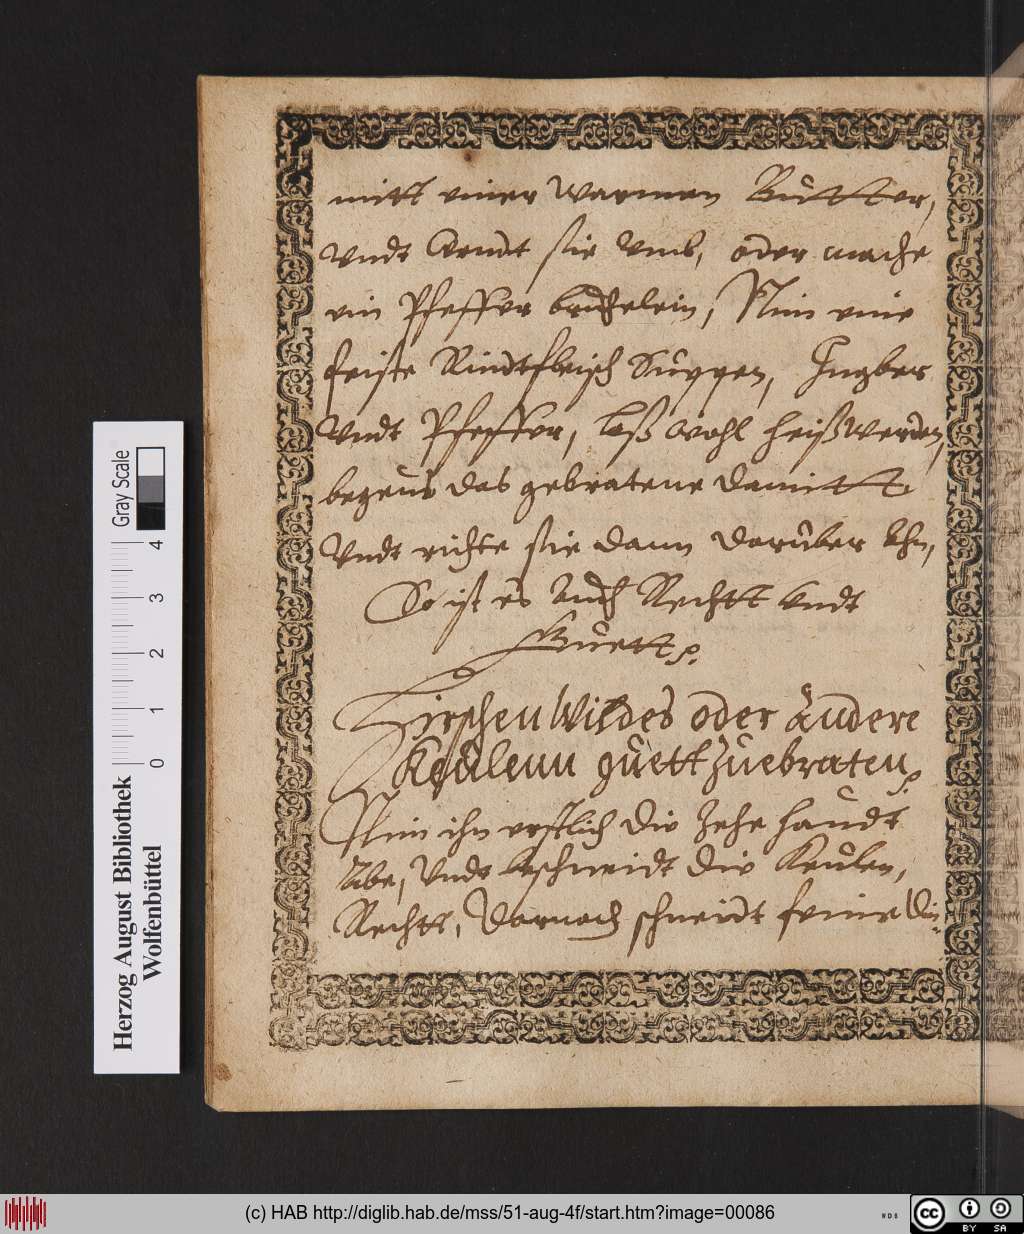 mitt einer warmen Butter,
Vndt wendt sie vmb, oder mache
ein Pfeffer brühelein, Nim eine
feiste Rindtfleisch Suppen, Ingber
Vndt Pfeffer, laß wohl heiß werden,
begeus das gebratene damitt
Vndt richte sie dann darüber hin,
So ist es Auch Rechtt undt
Guett p.
Hirschen Wildes oder Andere
Keulenn guett zuebraten p.
Nim ihn erstlich die Zehe haudt
Abe, Vndt beschneidt die Keulen,
Rechtt, Darnach schneidt feine Din-
Herzog August Bibliothek
Wolfenbüttel
Gray Scale
0 1 2 3 4
(c) HAB http://diglib.hab.de/mss/51-aug-4f/start.htm?image=00086
WDB
cc BY SA